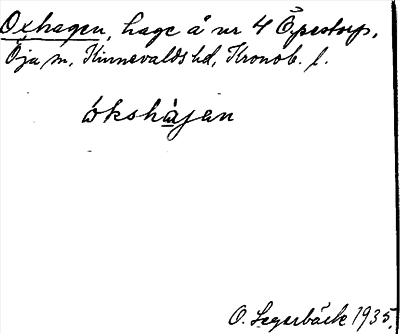 Oxhagen, hage å nr 4 Öpestorp,
Öja sn, Kinnevalds hd, Kronob. l.
ókshàjen
O. Segerbäck 1935.